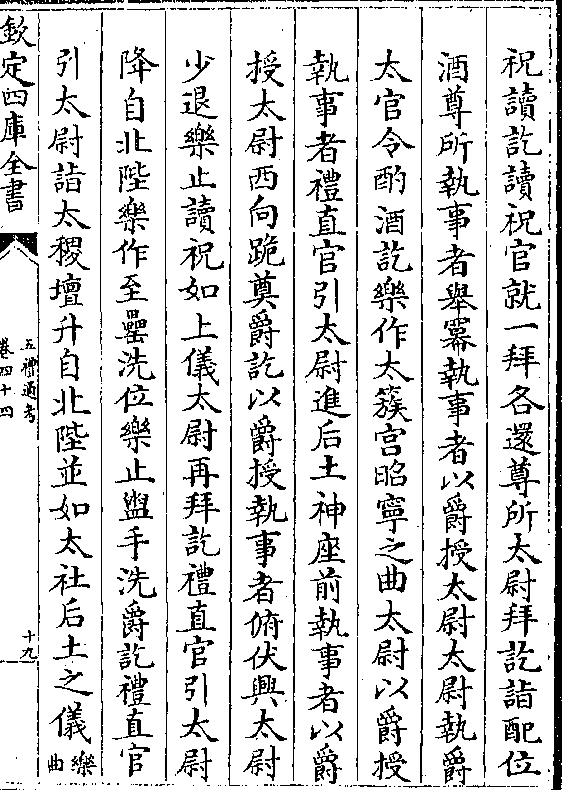 祝讀訖讀祝官就一拜各還尊所太尉拜訖詣配位
酒尊所執事者舉羃執事者以爵授太尉太尉執爵
太官令酌酒訖樂作太簇宫昭寧之曲太尉以爵授
執事者禮直官引太尉進后土神座前執事者以爵
授太尉西向跪奠爵訖以爵授執事者俯伏興太尉
少退樂止讀祝如上儀太尉再拜訖禮直官引太尉
降自北陛樂作至罍洗位樂止盥手洗爵訖禮直官
引太尉詣太稷壇升自北陛並如太社后土之儀樂
曲
欽定四庫全書
五禮通考
卷四十四
十九